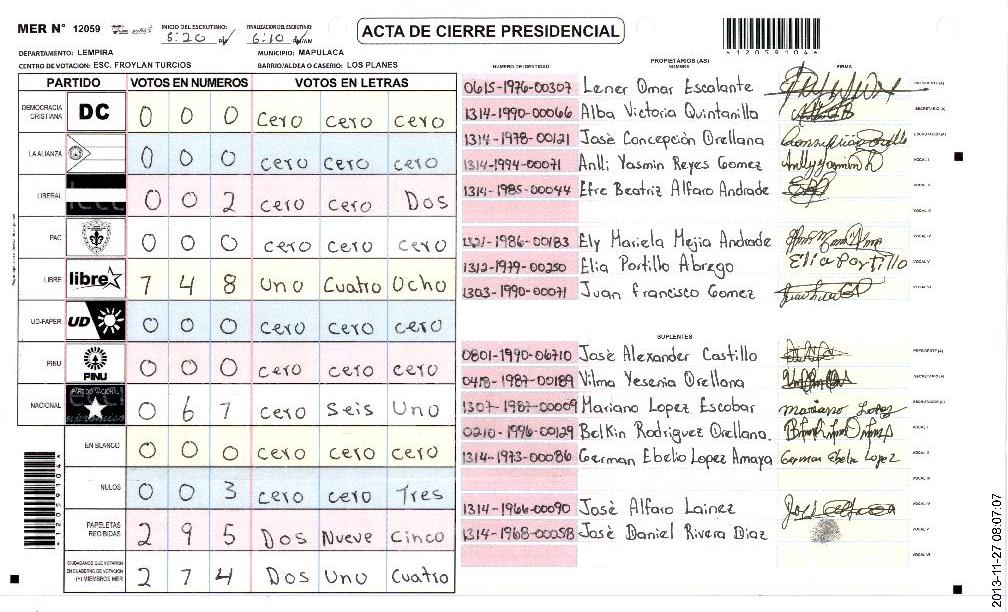 MER N° 12059
INICIO DEL ESCRUTINIO: FINALIZACION DEL ESCRUTINIO:
5:20 PM 6:10 P/M
ACTA DE CIERRE PRESIDENCIAL
*12059104*
DEPARTAMENTO: LEMPIRA MUNICIPIO: MAPULACA
CENTRO DE VOTACION: ESC. FROYLAN TURCIOS BARRIO/ALDEA O CASERIO: LOS PLANES
PARTIDO VOTOS EN NUMEROS VOTOS EN LETRAS
DEMOCRACIA CRISTIANA DC 0 0 0 cero cero cero
LA ALIANZA 0 0 0 cero cero cero
LIBERAL 0 0 2 cero cero Dos
PAC 0 0 0 cero cero cero
LIBRE libre 7 4 8 Uno Cuatro Ocho
UD-FAPER UD 0 0 0 cero cero cero
PINU PINU 0 0 0 cero cero cero
NACIONAL 0 6 7 cero Seis Uno
EN BLANCO 0 0 0 cero cero cero
NULOS 0 0 3 cero cero Tres
PAPELETAS RECIBIDAS 2 9 5 Dos Nueve Cinco
CIUDADANOS QUE VOTARON EN CUADERNO DE VOTACION (+) MIEMBROS MER 2 7 4 Dos Uno Cuatro
*12059104*
PROPIETARIOS (AS)
NUMERO DE IDENTIDAD NOMBRE FIRMA
0615-1976-00307 Lener Omar Escalante PRESIDENTE (A)
1314-1990-00066 Alba Victoria Quintanilla SECRETARIO (A)
1314-1978-00121 Josè Concepciòn Orellana ESCRUTADOR (A)
1314-1994-00071 Anlli Yasmin Reyes Gomez VOCAL I
1314-1985-00044 Efre Beatriz Alfaro Andrade VOCAL II
VOCAL III
1321-1986-00183 Ely Mariela Mejia Andrade VOCAL IV
1312-1979-00250 Elia Portillo Abrego Elia Portillo VOCAL V
1303-1990-00071 Juan Francisco Gomez VOCAL VI
SUPLENTES
0801-1990-06710 Josè Alexander Castillo PRESIDENTE (A)
0418-1987-00189 Vilma Yesenia Orellana SECRETARIO (A)
1307-1987-00009 Mariano Lopez Escobar Mariano Lopez ESCRUTADOR (A)
0210-1996-00129 Belkin Rodriguez Orellana. VOCAL I
1314-1973-00086 German Ebelio Lopez Amaya German Ebelio Lopez VOCAL II
VOCAL III
1314-1966-00090 Josè Alfaro Lainez VOCAL IV
1314-1968-00058 Josè Daniel Rivera Diaz VOCAL V
VOCAL VI
2013-11-27 08:07:07